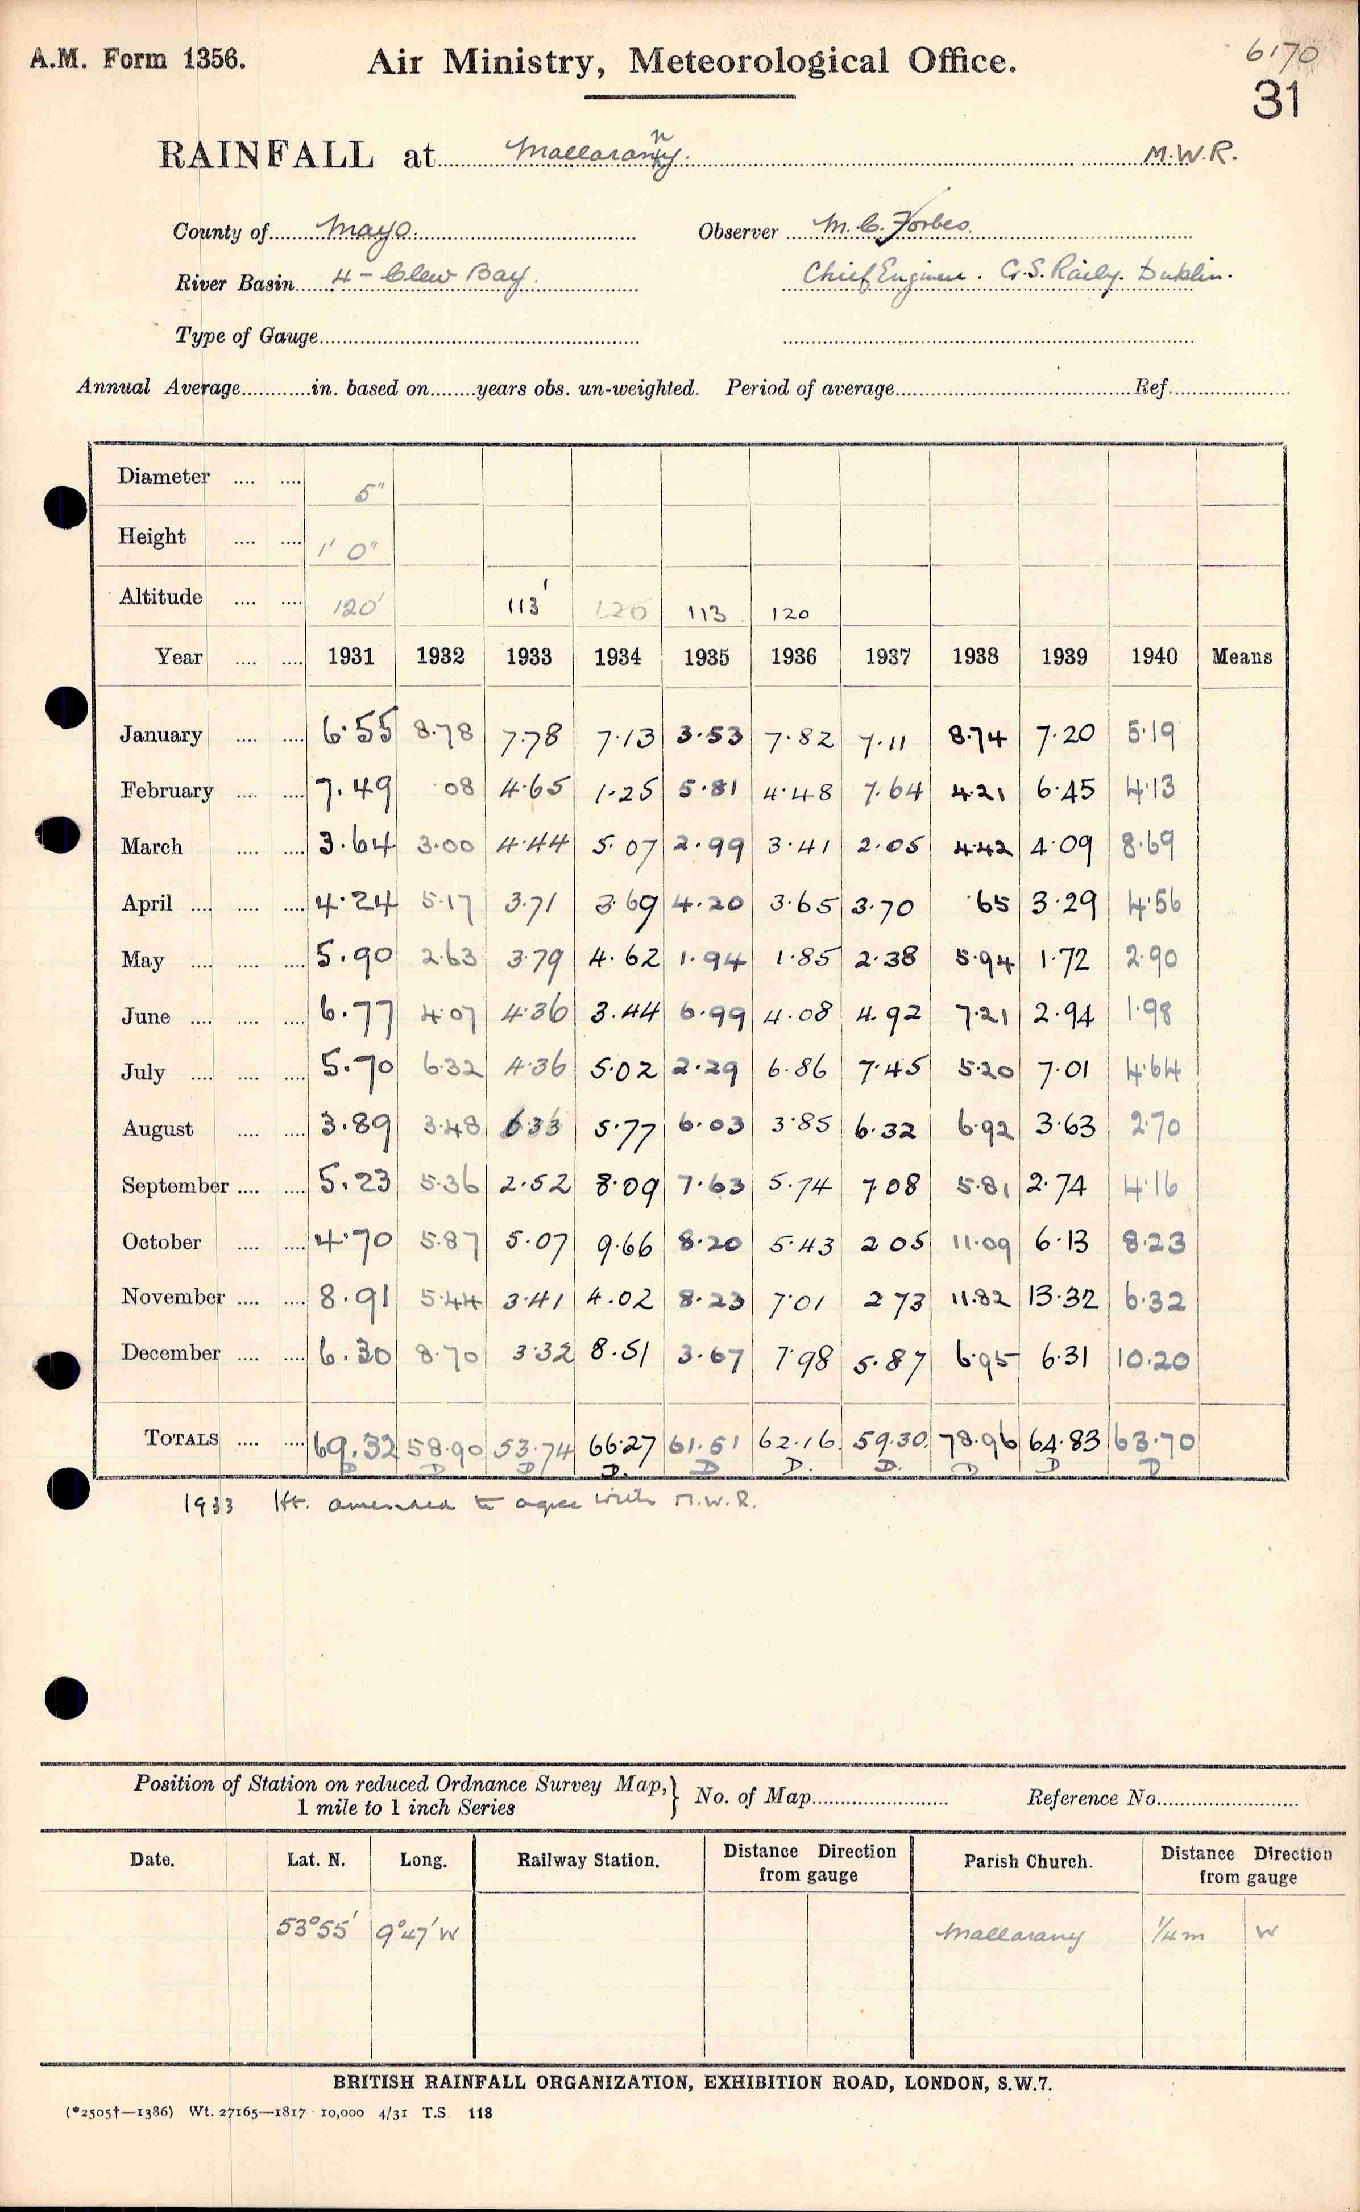 A.M. Form 1356. Air Ministry, Meteorological Office. 6170
31
RAINFALL at Mallaranny. M.W.R.
County of Mayo. Observer M. C. Forbes.
River Basin 4 - Clew Bay. Chief Engineer. G.S. Raily. Dublin.
Type of Gauge
Annual Average in. based on years obs. un-weighted. Period of average Ref.
Diameter 5"
Height 1' 0"
Altitude 120' 113' 120 113 120
Year 1931 1932 1933 1934 1935 1936 1937 1938 1939 1940 Means
January 6.55 8.78 7.78 7.13 3.53 7.82 7.11 8.74 7.20 5.19
February 7.49 .08 4.65 1.25 5.81 4.48 7.64 4.21 6.45 4.13
March 3.64 3.00 4.44 5.07 2.99 3.41 2.05 4.42 4.09 8.69
April 4.24 5.17 3.71 3.69 4.20 3.65 3.70 .65 3.29 4.56
May 5.90 2.63 3.79 4.62 1.94 1.85 2.38 5.94 1.72 2.90
June 6.77 4.07 4.36 3.44 6.99 4.08 4.92 7.21 2.94 1.98
July 5.70 6.32 4.36 5.02 2.29 6.86 7.45 5.20 7.01 4.64
August 3.89 3.48 6.33 5.77 6.03 3.85 6.32 6.92 3.63 2.70
September 5.23 5.36 2.52 8.09 7.63 5.74 7.08 5.81 2.74 4.16
October 4.70 5.87 5.07 9.66 8.20 5.43 2 05 11.09 6.13 8.23
November 8.91 5.44 3.41 4.02 8.23 7.01 2 73 11.82 13.32 6.32
December 6.30 8.70 3.32 8.51 3.67 7.98 5.87 6.95 6.31 10.20
TOTALS 69.32 58.90 53.74 66.27 61.51 62.16 59.30 78.96 64.83 63.70
D D D D. D D. D. D D D
1933 Ht. amended to agree with M.W.R.
Position of Station on reduced Ordnance Survey Map,} No. of Map Reference No.
1 mile to 1 inch Series
Date. Lat. N. Long. Railway Station. Distance Direction from gauge Parish Church. Distance Direction from gauge
53°55' 9°47'W Mallarany 1/4m W
BRITISH RAINFALL ORGANIZATION, EXHIBITION ROAD, LONDON, S.W.7.
(*2505†—1386) Wt. 27165—1817 10,000 4/31 T.S. 118